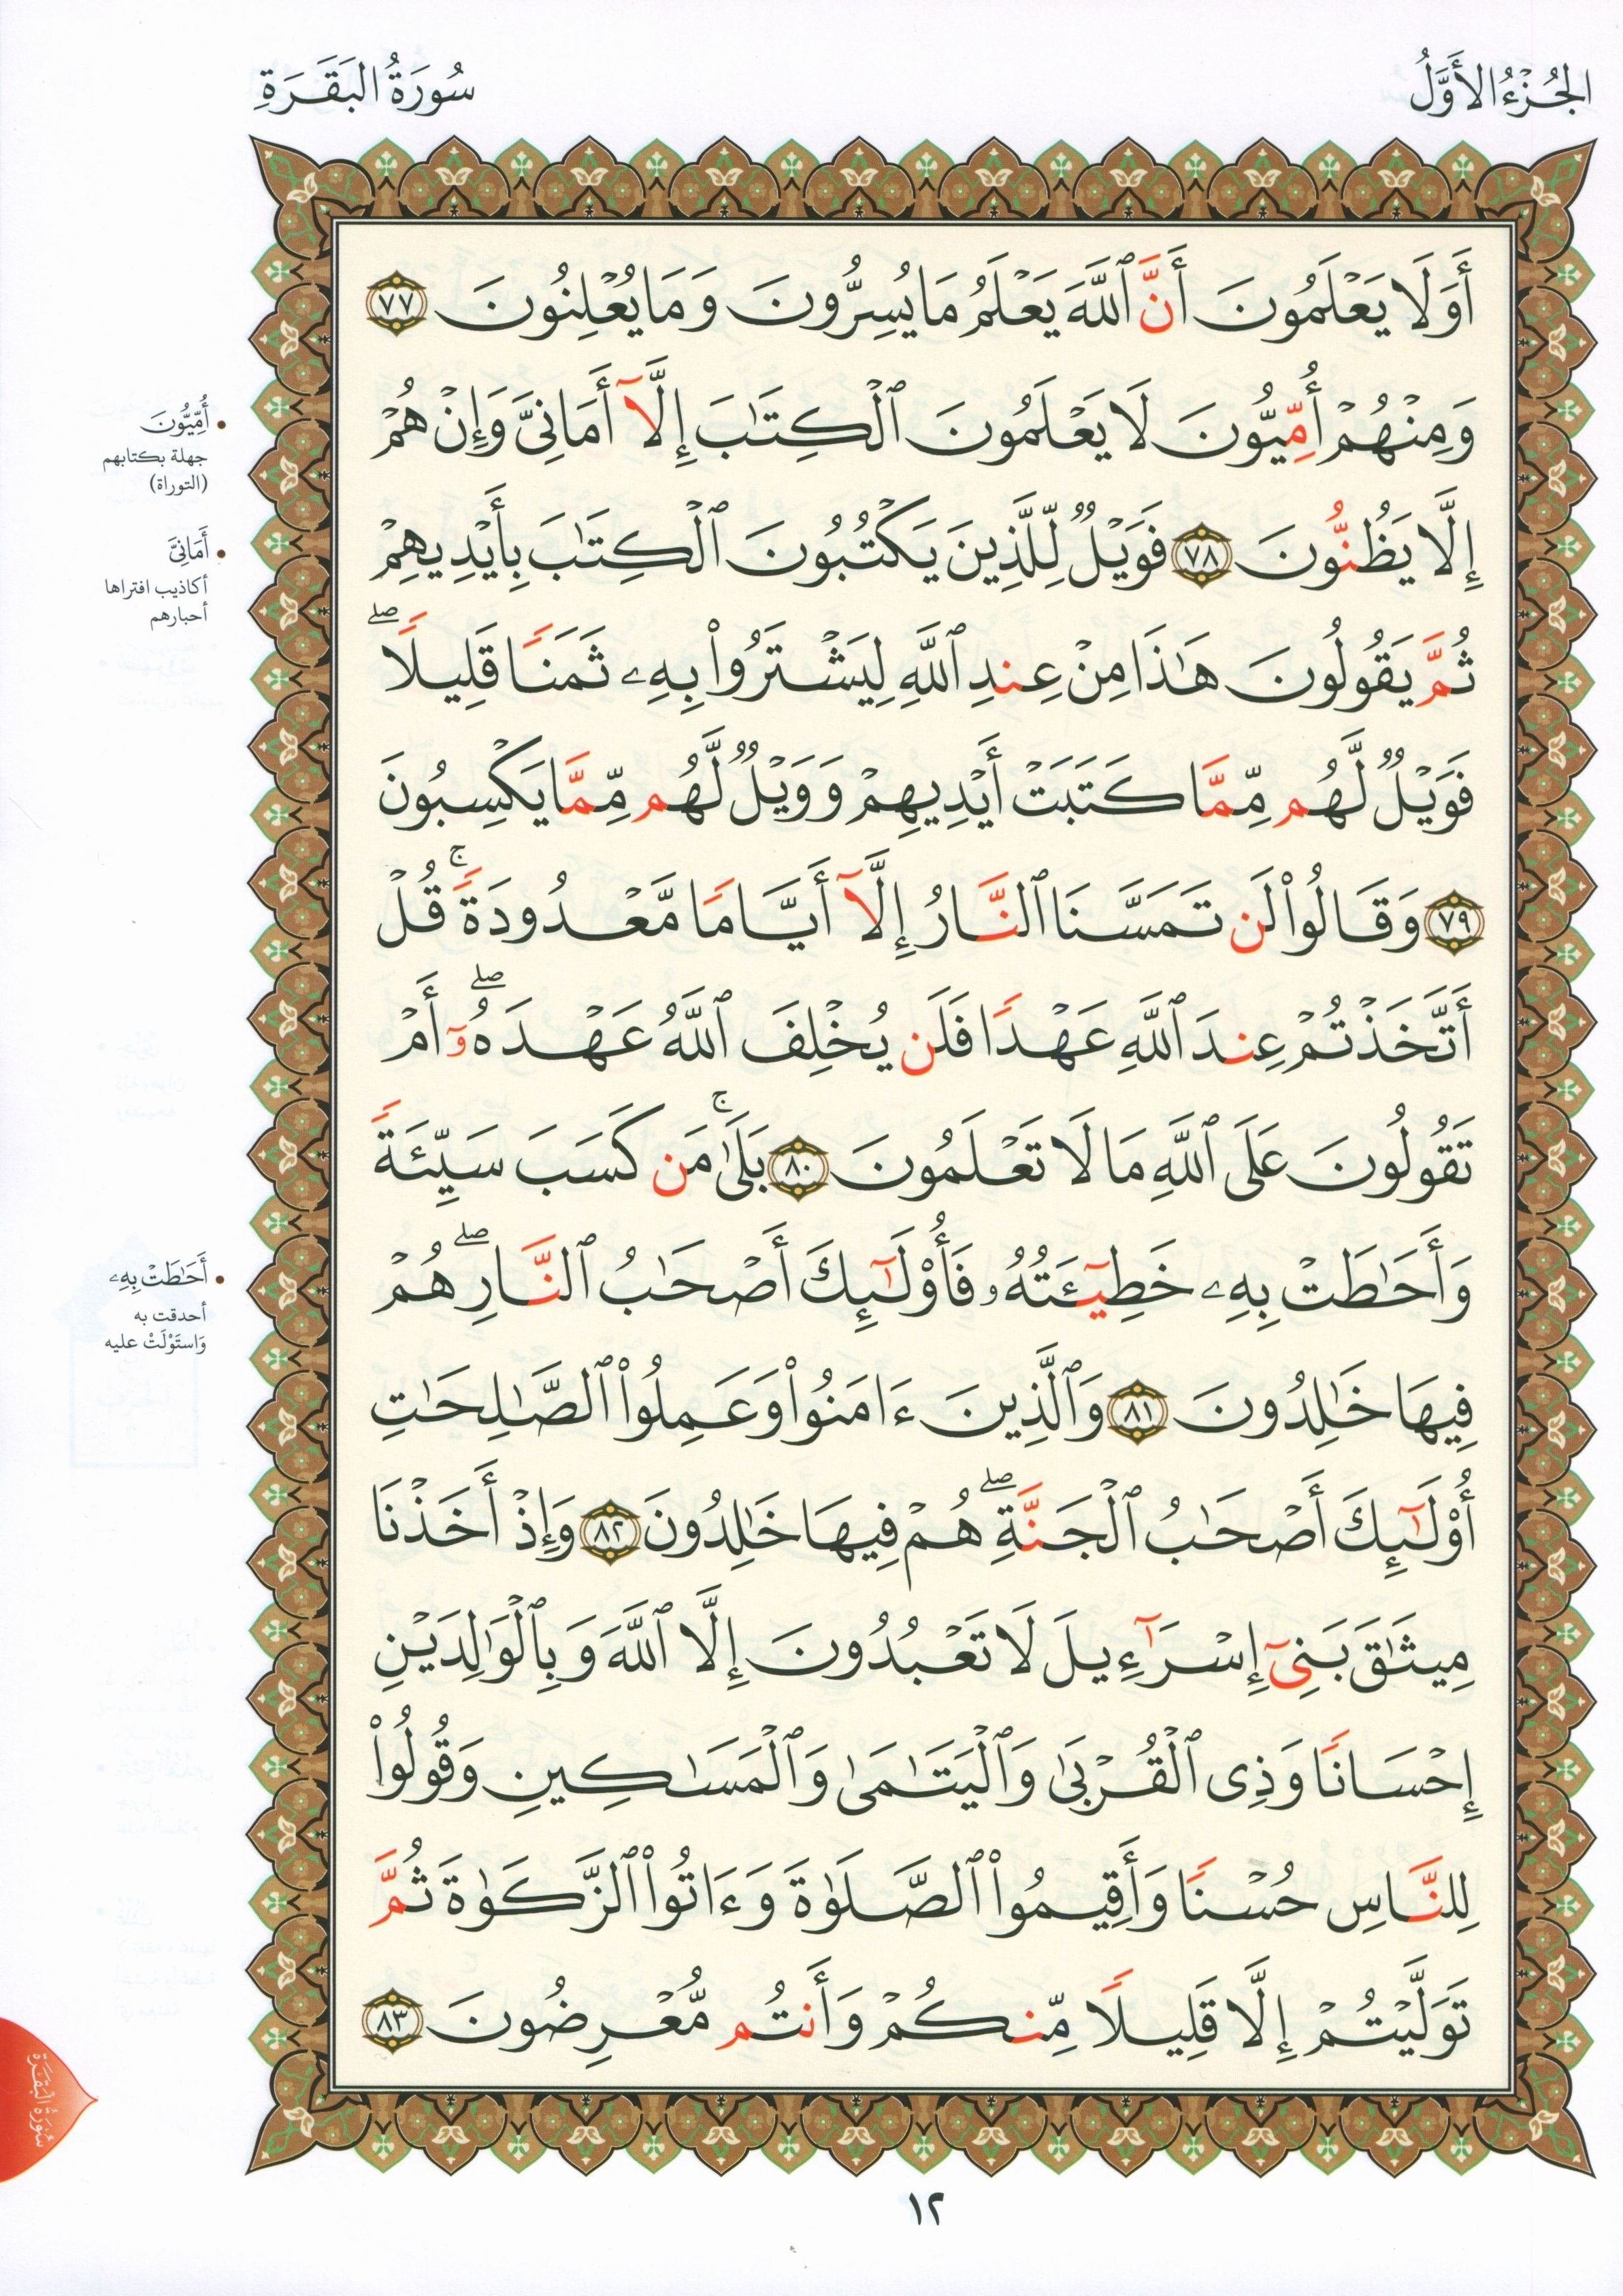 الجُزْءُ الأَوَّلُ
سُورَةُ البَقَرَةِ
أَوَلَا يَعْلَمُونَ أَنَّ ٱللَّهَ يَعْلَمُ مَا يُسِرُّونَ وَمَا يُعْلِنُونَ ٧٧
وَمِنْهُمْ أُمِّيُّونَ لَا يَعْلَمُونَ ٱلْكِتَٰبَ إِلَّآ أَمَانِىَّ وَإِنْ هُمْ
إِلَّا يَظُنُّونَ ٧٨ فَوَيْلٌ لِّلَّذِينَ يَكْتُبُونَ ٱلْكِتَٰبَ بِأَيْدِيهِمْ
ثُمَّ يَقُولُونَ هَٰذَا مِنْ عِندِ ٱللَّهِ لِيَشْتَرُوا۟ بِهِۦ ثَمَنًا قَلِيلًا ۖ
فَوَيْلٌ لَّهُم مِّمَّا كَتَبَتْ أَيْدِيهِمْ وَوَيْلٌ لَّهُم مِّمَّا يَكْسِبُونَ
٧٩ وَقَالُوا۟ لَن تَمَسَّنَا ٱلنَّارُ إِلَّآ أَيَّامًا مَّعْدُودَةً ۚ قُلْ
أَتَّخَذْتُمْ عِندَ ٱللَّهِ عَهْدًا فَلَن يُخْلِفَ ٱللَّهُ عَهْدَهُۥٓ ۖ أَمْ
تَقُولُونَ عَلَى ٱللَّهِ مَا لَا تَعْلَمُونَ ٨٠ بَلَىٰ ۚ مَن كَسَبَ سَيِّئَةً
وَأَحَٰطَتْ بِهِۦ خَطِيٓـَٔتُهُۥ فَأُو۟لَٰٓئِكَ أَصْحَٰبُ ٱلنَّارِ ۖ هُمْ
فِيهَا خَٰلِدُونَ ٨١ وَٱلَّذِينَ ءَامَنُوا۟ وَعَمِلُوا۟ ٱلصَّٰلِحَٰتِ
أُو۟لَٰٓئِكَ أَصْحَٰبُ ٱلْجَنَّةِ ۖ هُمْ فِيهَا خَٰلِدُونَ ٨٢ وَإِذْ أَخَذْنَا
مِيثَٰقَ بَنِىٓ إِسْرَٰٓءِيلَ لَا تَعْبُدُونَ إِلَّا ٱللَّهَ وَبِٱلْوَٰلِدَيْنِ
إِحْسَانًا وَذِى ٱلْقُرْبَىٰ وَٱلْيَتَٰمَىٰ وَٱلْمَسَٰكِينِ وَقُولُوا۟
لِلنَّاسِ حُسْنًا وَأَقِيمُوا۟ ٱلصَّلَوٰةَ وَءَاتُوا۟ ٱلزَّكَوٰةَ ثُمَّ
تَوَلَّيْتُمْ إِلَّا قَلِيلًا مِّنكُمْ وَأَنتُم مُّعْرِضُونَ ٨٣
• أُمِّيُّونَ
جهلة بكتابهم
(التوراة)
• أَمَانِىَّ
أكاذيب افتراها
أحبارهم
• أَحَٰطَتْ بِهِۦ
أحدقت به
وَاستَوْلَتْ عليه
سُورَةُ البَقَرَة
١٢